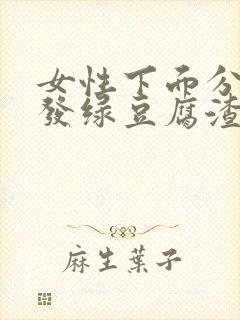 女性下面分
發绿豆腐渣
麻生葉子